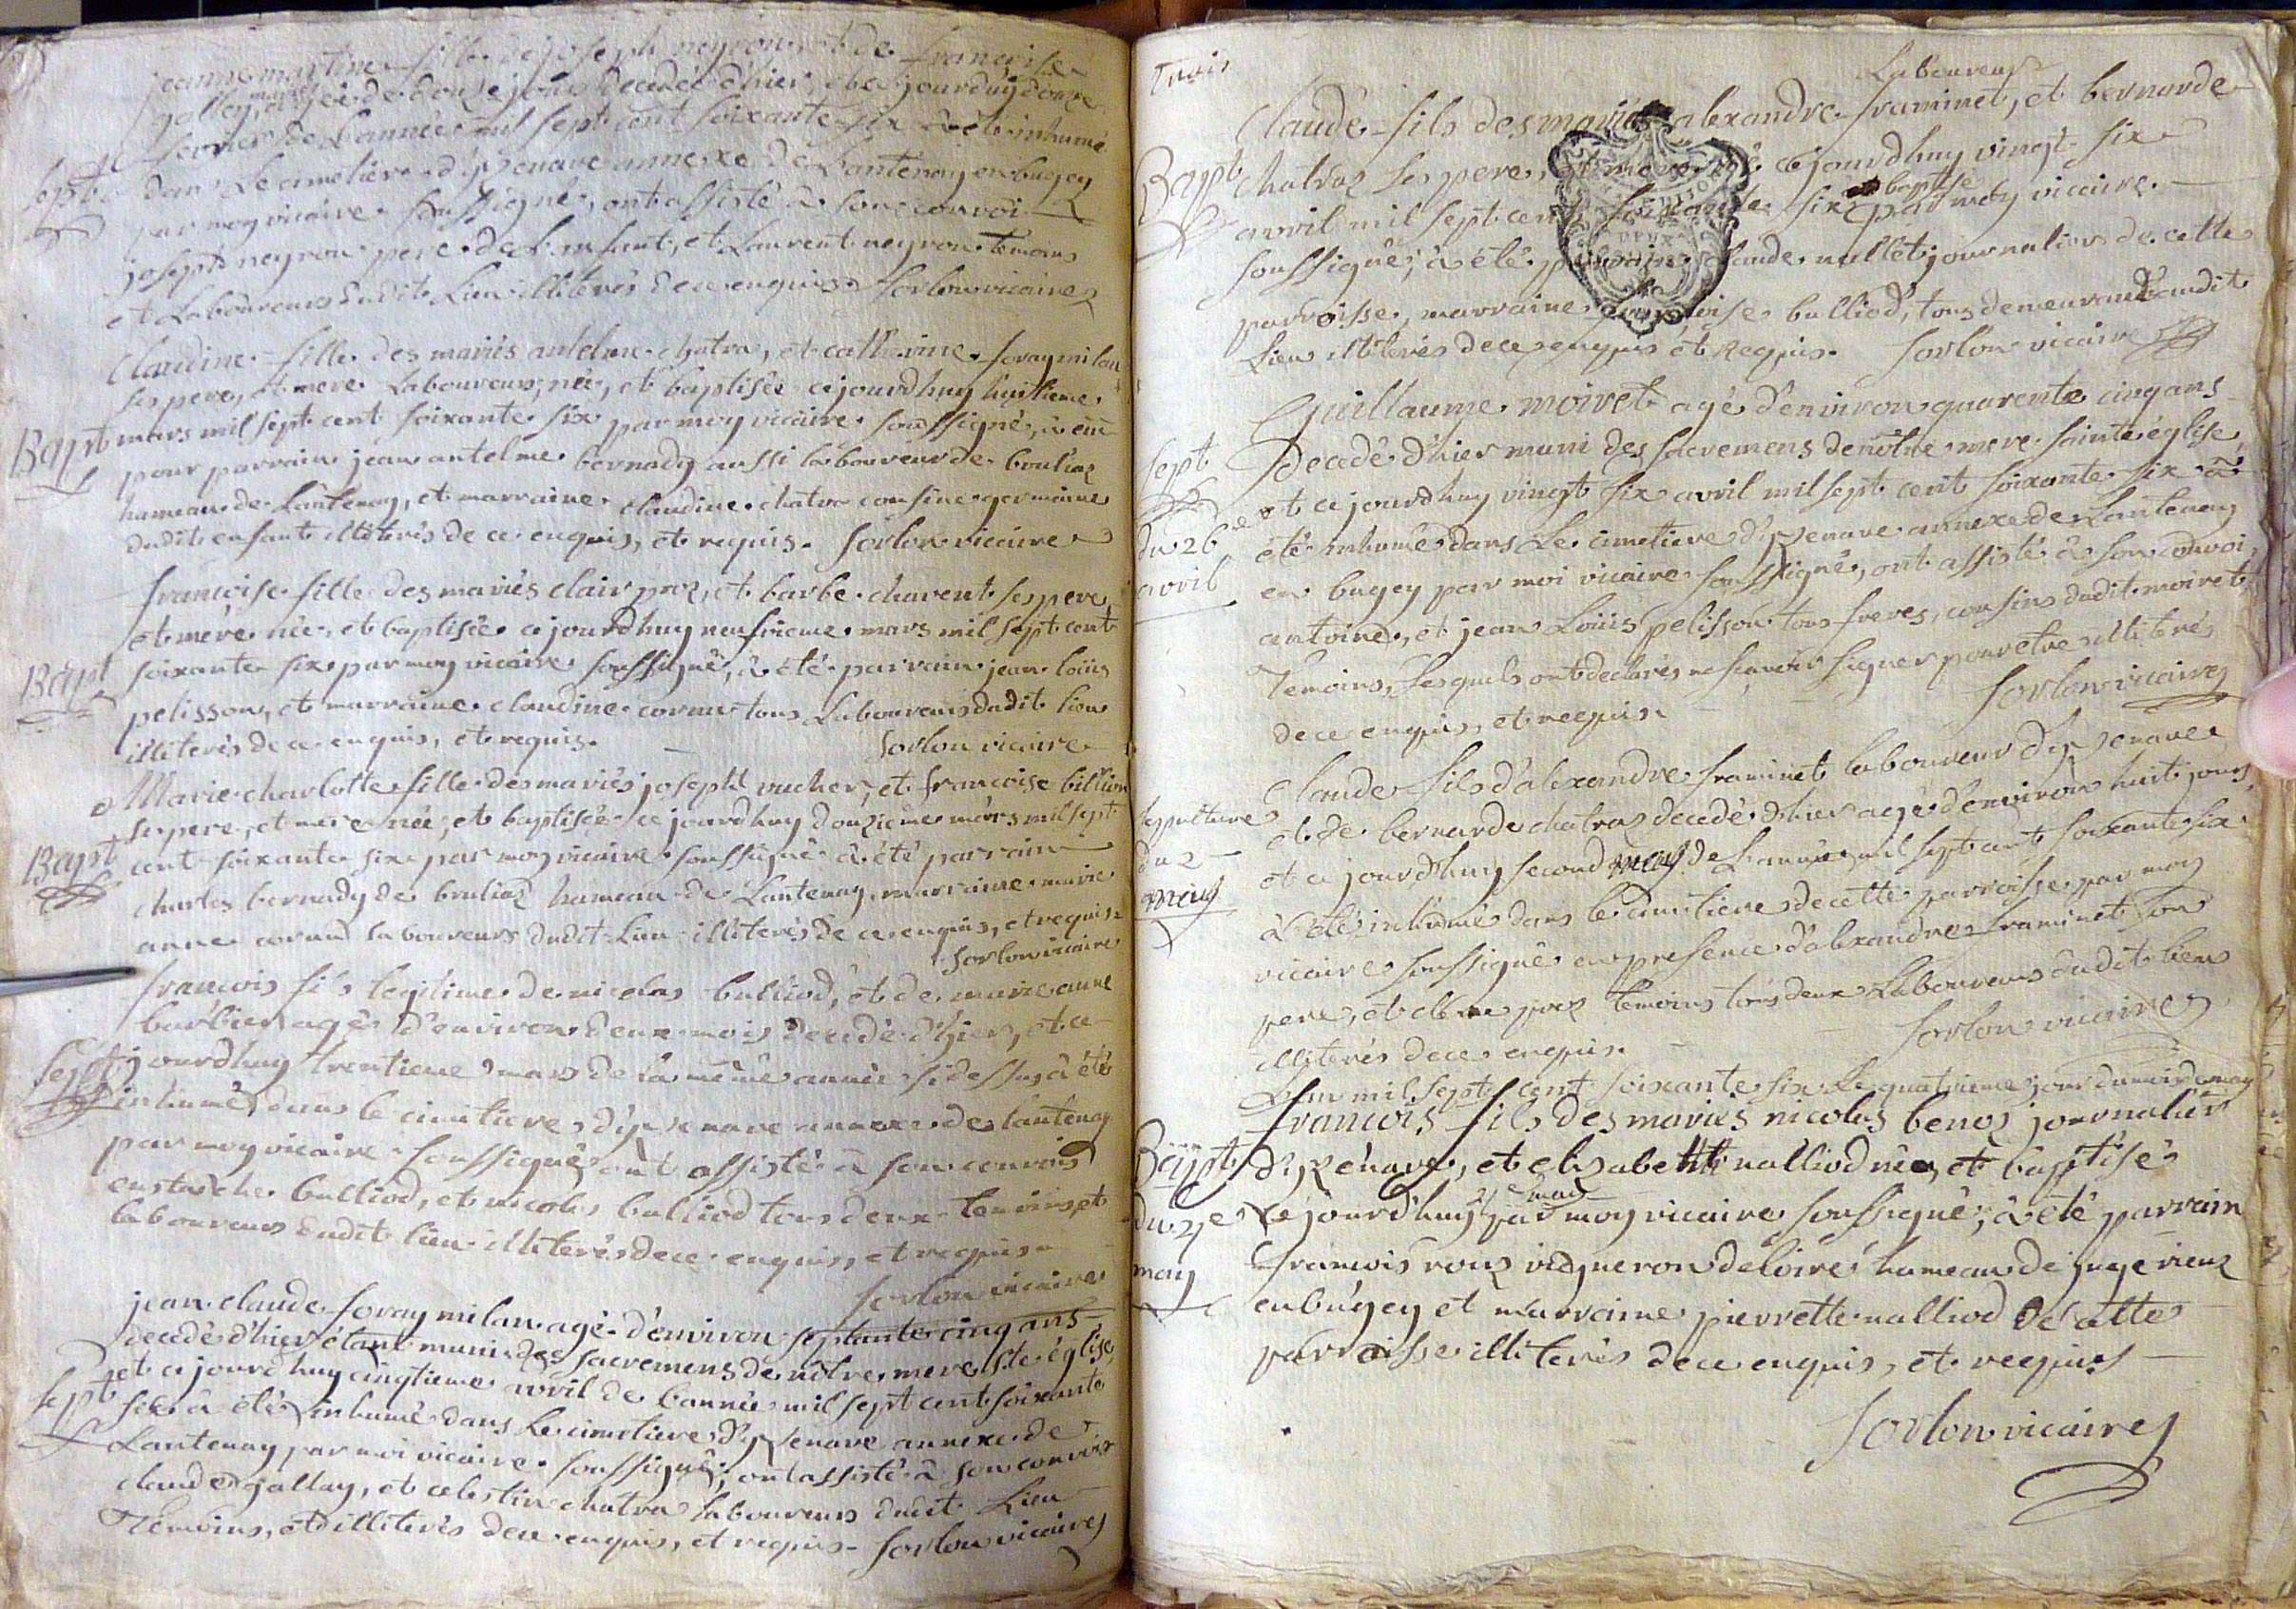 jeanne martine fille de joseph neyron, et de francoise
gallay, mariés agée de douze jours decedée d'hier, et ce jourdhuy douze
fevrier de l'année mil sept cent soixante six à été inhumé
Sept. dans le cimetiere d'izenave annexe de Lantenay en bugey
par moy vicaire soussigné, ont assisté à son convoi
joseph neyron pere de l'enfant, et Laurent neyron temoins
et Laboureurs dudit Lieu illiterés de ce enquis. Sorlon vicaire
Claudine fille des mariés antelme chatra, et catherine foray milan
ses pere, et mere laboureurs, née, et baptisée ce jourdhuy huitieme
Bapt mars mil sept cent soixante six par moy vicaire soussigné, à eu
pour parrain jean antelme bernady aussi laboureur de bouliaz
hameau de Lantenay, et marraine claudine chatra cousine germaine
dudit enfant illiterés de ce enquis, et requis. Sorlon vicaire
françoise fille des mariés clair proz, et barbe charent ses pere,
et mere née, et baptisée ce jourdhuy neufvieme mars mil sept cent
Bapt soixante six par moy vicaire soussigné, à été parrain jean loüis
pelisson, et marraine claudine cornu tous Laboureurs dudit lieu
illiterés de ce enquis, et requis. Sorlon vicaire
Marie charlotte fille des mariés joseph vucher, et francoise billion
ses pere, et mere née, et baptisée ce jourdhuy douzieme mars mil sept
Bapt cent soixante six par moy vicaire soussigné à été parrain
charles bernady de bouliaz hameau de Lantenay, marraine marie
anne cornu laboureurs dudit Lieu illiterés de ce enquis, et requis
Sorlon vicaire
francois fils legitime de nicolas bulliod, et de marie anne
barbier agé d'environ deux mois decedé d'hier, et ce
Sept jourdhuy trentieme mars de la même année si dessus à été
inhumé dans le cimetiere d'izenave annexe de lantenay
par moy vicaire soussigné ont assisté à son convoi
eustache bulliod, et nicolas bulliod tous deux temoins, et
laboureurs dudit lieu illiterés de ce enquis, et requis
Sorlon vicaire
jean claude foray milan agé d'environ septante cinq ans
decedé d'hier étant muni des sacremens de nôtre mere ste église,
et ce jourdhuy cinqtieme avril de l'année mil sept cent soixante
Sept six à été inhumé dans Le cimetiere d'izenave annexe de
Lantenay par moi vicaire soussigné, ont assisté à son convoi
claude gallay, et celestin chatra laboureurs dudit Lieu
Temoins, et illiterés de ce enquis, et requis. Sorlon vicaire
Trois
Laboureurs
Claude fils des mariés alexandre framinet, et bernarde
Bapt chatraz ses pere, et mere né ce jourdhuy vingt six
avril mil sept cent soixante six et baptisé par moy vicaire
soussigné, à été parrain claude nallet journalier de cette
parroisse, marraine francoise bulliod, tous demeurant audit
Lieu illiterés de ce enquis et Requis. Sorlon vicaire
Guillaume moiret agé d'environ quarente cinq ans
Sept decedé d'hier muni des sacremens de nôtre mere sainte église,
et ce jourdhuy vingt six avril mil sept cent soixante six à
du 26e été inhumé dans Le cimetiere d'izenave annexe de Lantenay
avril en bugey par moi vicaire soussigné, ont assisté à son convoi,
antoine, et jean Loüis pelisson tous freres, cousins dudit moiret,
Temoins, Lesquels ont declarés ne sçavoir signer pour etre illiterés
de ce enquis, et requis. Sorlon vicaire
Claude fils d'alexandre framinet laboureur d'izenave
sepulture et de bernarde chatraz decedé d'hier agé d'environ huit jours,
du 2 et ce jourdhuy second may de l'année mil sept cent soixante six
may à été inhumé dans le cimetiere de cette parroisse par moy
vicaire soussigné en presence d'alexandre framinet son
pere, et proz temoins tous deux Laboureurs dudit lieu
illiterés de ce enquis. Sorlon vicaire
L'an mil sept cent soixante six Le quatrieme jour du mois de may
francois fils des mariés nicolas benoz journalier
Bapt d'izénave, et elizabetht nalliod né, et baptisé
du 4e ce jourdhuy 4e may par moy vicaire soussigné, à été parrain
may francois roux vigneron de loire hameau de jujerieux
en bugey et marraine pierrette nalliod de cette
parroisse illiterés de ce enquis, et requis
Sorlon vicaire